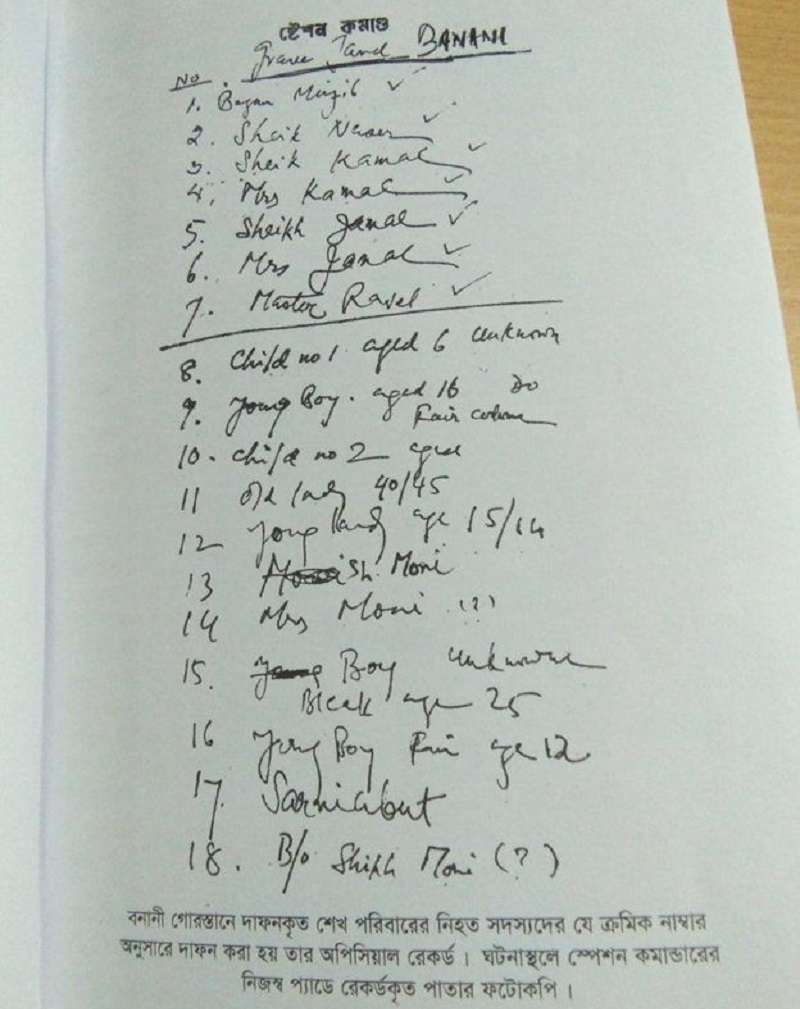 ষ্টেশন কমান্ড
Grave Yard BANANI
NO.
1. Begum Mujib ✓
2. Sheik Naser ✓
3. Sheik Kamal ✓
4. Mrs Kamal ✓
5. Sheikh Jamal ✓
6. Mrs Jamal ✓
7. Master Rasel ✓
8. Child no 1 aged 6 unknown
9. Young Boy. aged 16 Do
Fair
10. Child no 2 aged
11 Old lady 40/45
12 Young lady age 15/14
13 Sh. Moni
14 Mrs Moni (?)
15. Boy unknown
Bleak age 25
16 Young Boy Fair age 12
17. Sarniabut
18. B/o Shikh Moni (?)
বনানী গোরস্তানে দাফনকৃত শেখ পরিবারের নিহত সদস্যদের যে ক্রমিক নাম্বার
অনুসারে দাফন করা হয় তার অপিসিয়াল রেকর্ড। ঘটনাস্থলে স্পেশন কমান্ডারের
নিজস্ব প্যাডে রেকর্ডকৃত পাতার ফটোকপি।